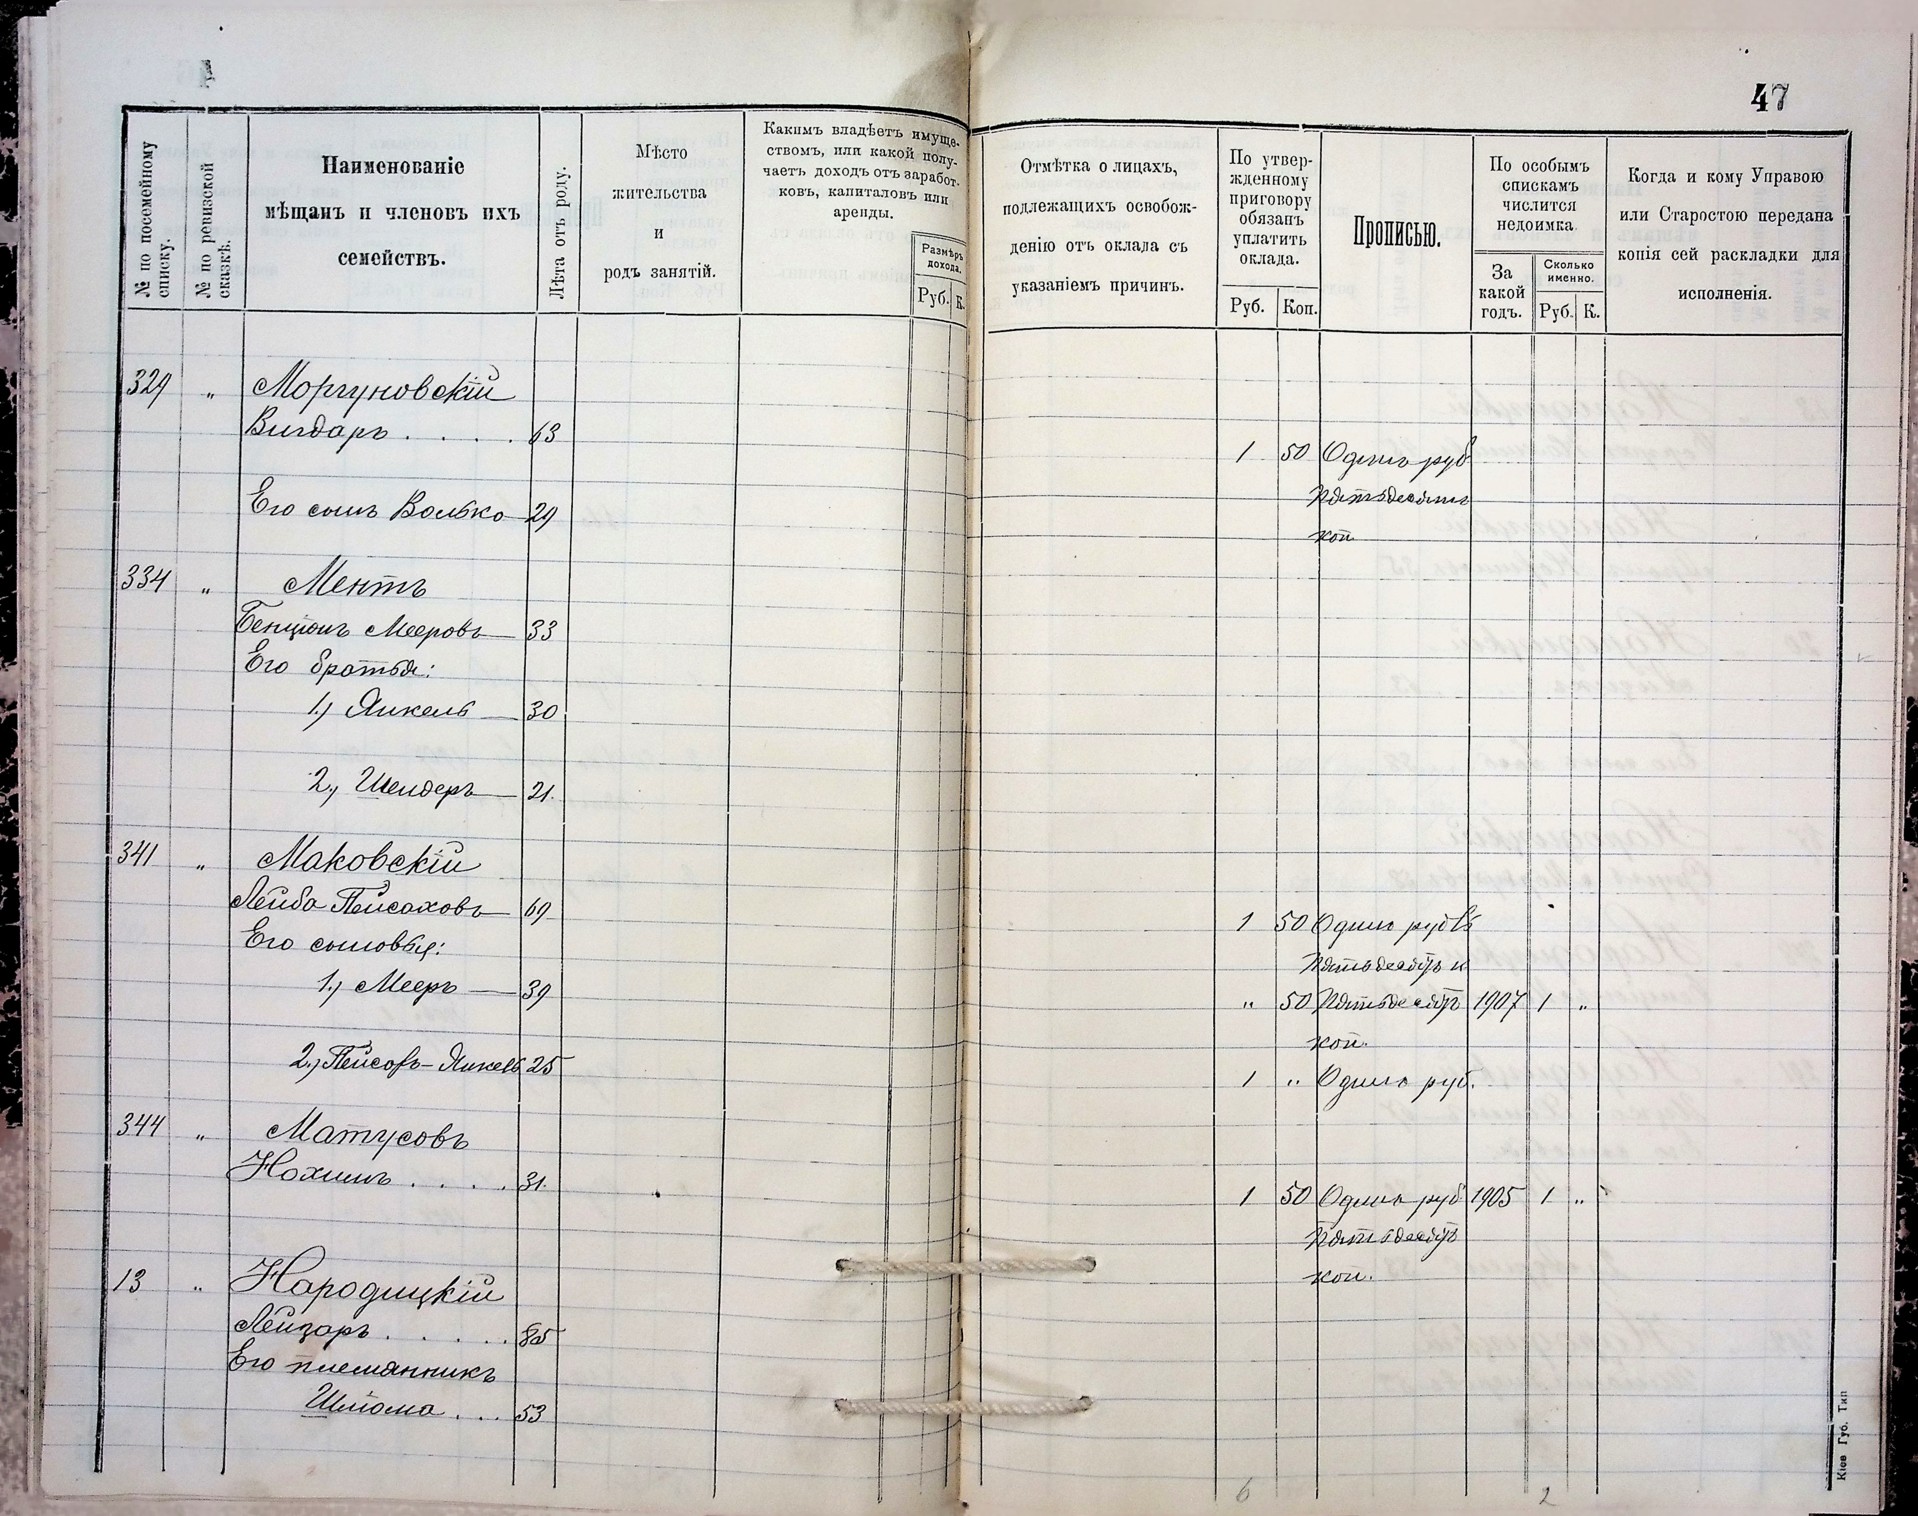 47
№ по посемейному списку.
№ по ревизской сказкѣ.
Наименованіе
мѣщанъ и членовъ ихъ
семействъ.
Лѣта отъ роду.
Мѣсто
жительства
и
родъ занятій.
Какимъ владѣетъ имуще-
ствомъ, или какой полу-
чаетъ доходъ отъ заработ-
ковъ, капиталовъ или
аренды.
Размѣръ
дохода.
Руб. К.
Отмѣтка о лицахъ,
подлежащихъ освобож-
денію отъ оклада съ
указаніемъ причинъ.
По утвер-
жденному
приговору
обязанъ
уплатить
оклада.
Руб. Коп.
Прописью.
По особымъ
спискамъ
числится
недоимка.
За
какой
годъ.
Сколько
именно.
Руб. К.
Когда и кому Управою
или Старостою передана
копія сей раскладки для
исполненія.
329 " Моргуновскій
Вигдаръ . . . . 63
1 50 Одинъ руб
Пятьдесятъ
Его сынъ Волько 29
коп
334 " Ментъ
Бенціонъ Мееровъ 33
Его братья:
1.) Янкель — 30
2.) Шендеръ — 21.
341 " Маковскій
Лейба Пейсаховъ 69
1 50 Одинъ рубль
Его сыновья:
Пятьдесятъ к
1.) Мееръ — 39
" 50 Пятьдесятъ 1907 1 "
коп.
2.) Янкель 25
1 " Одинъ руб.
344 " Матусовъ
Нохимъ . . . . 31.
1 50 Одинъ руб 1905 1 "
Пятьдесятъ
коп.
13 " Народицкій
Лейзаръ . . . . . 85
Его племянникъ
Шліома . . . 53
6 2
Кіев Губ. Тип